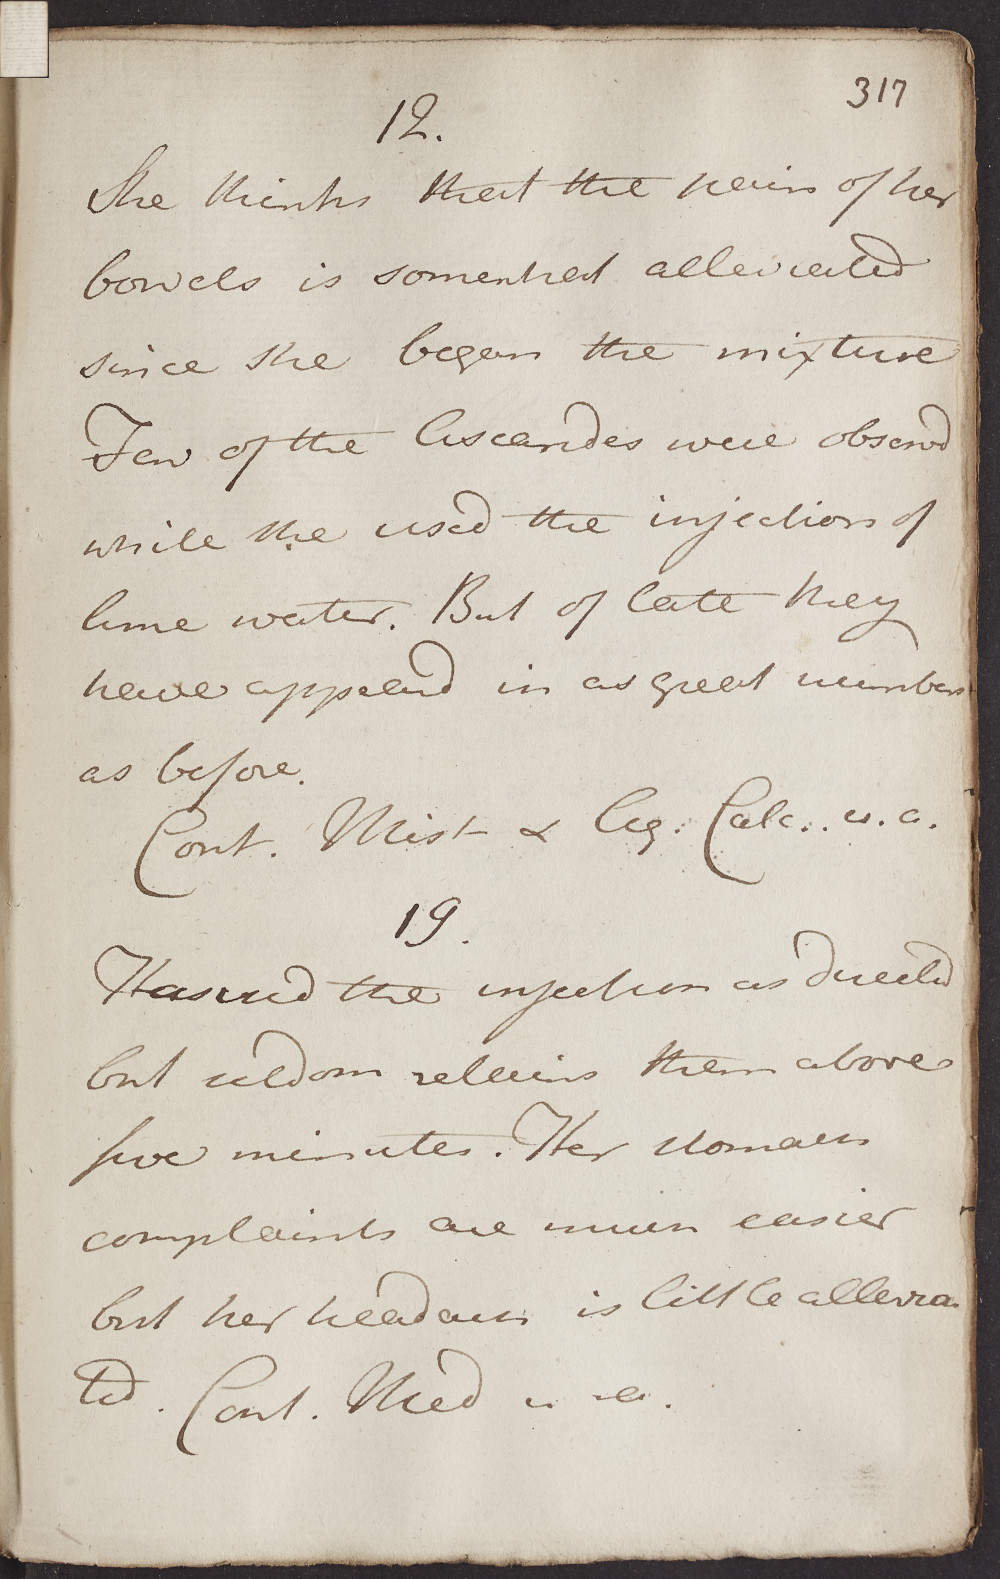 317
12.
She thinks that the pain of her
bowels is somewhat alleviated
since she began the mixture
Few of the Ascarides were observd
while she used the injection of
lime water. But of late they
have appeard in as great numbers
as before.
Cont. Mist & Aq. Calc. u.a.
19.
Has used the injection as directed
but seldom retains them above
five minutes. Her stomach
complaints are much easier
but her headach is little allevia
ted. Cont. Med u.a.